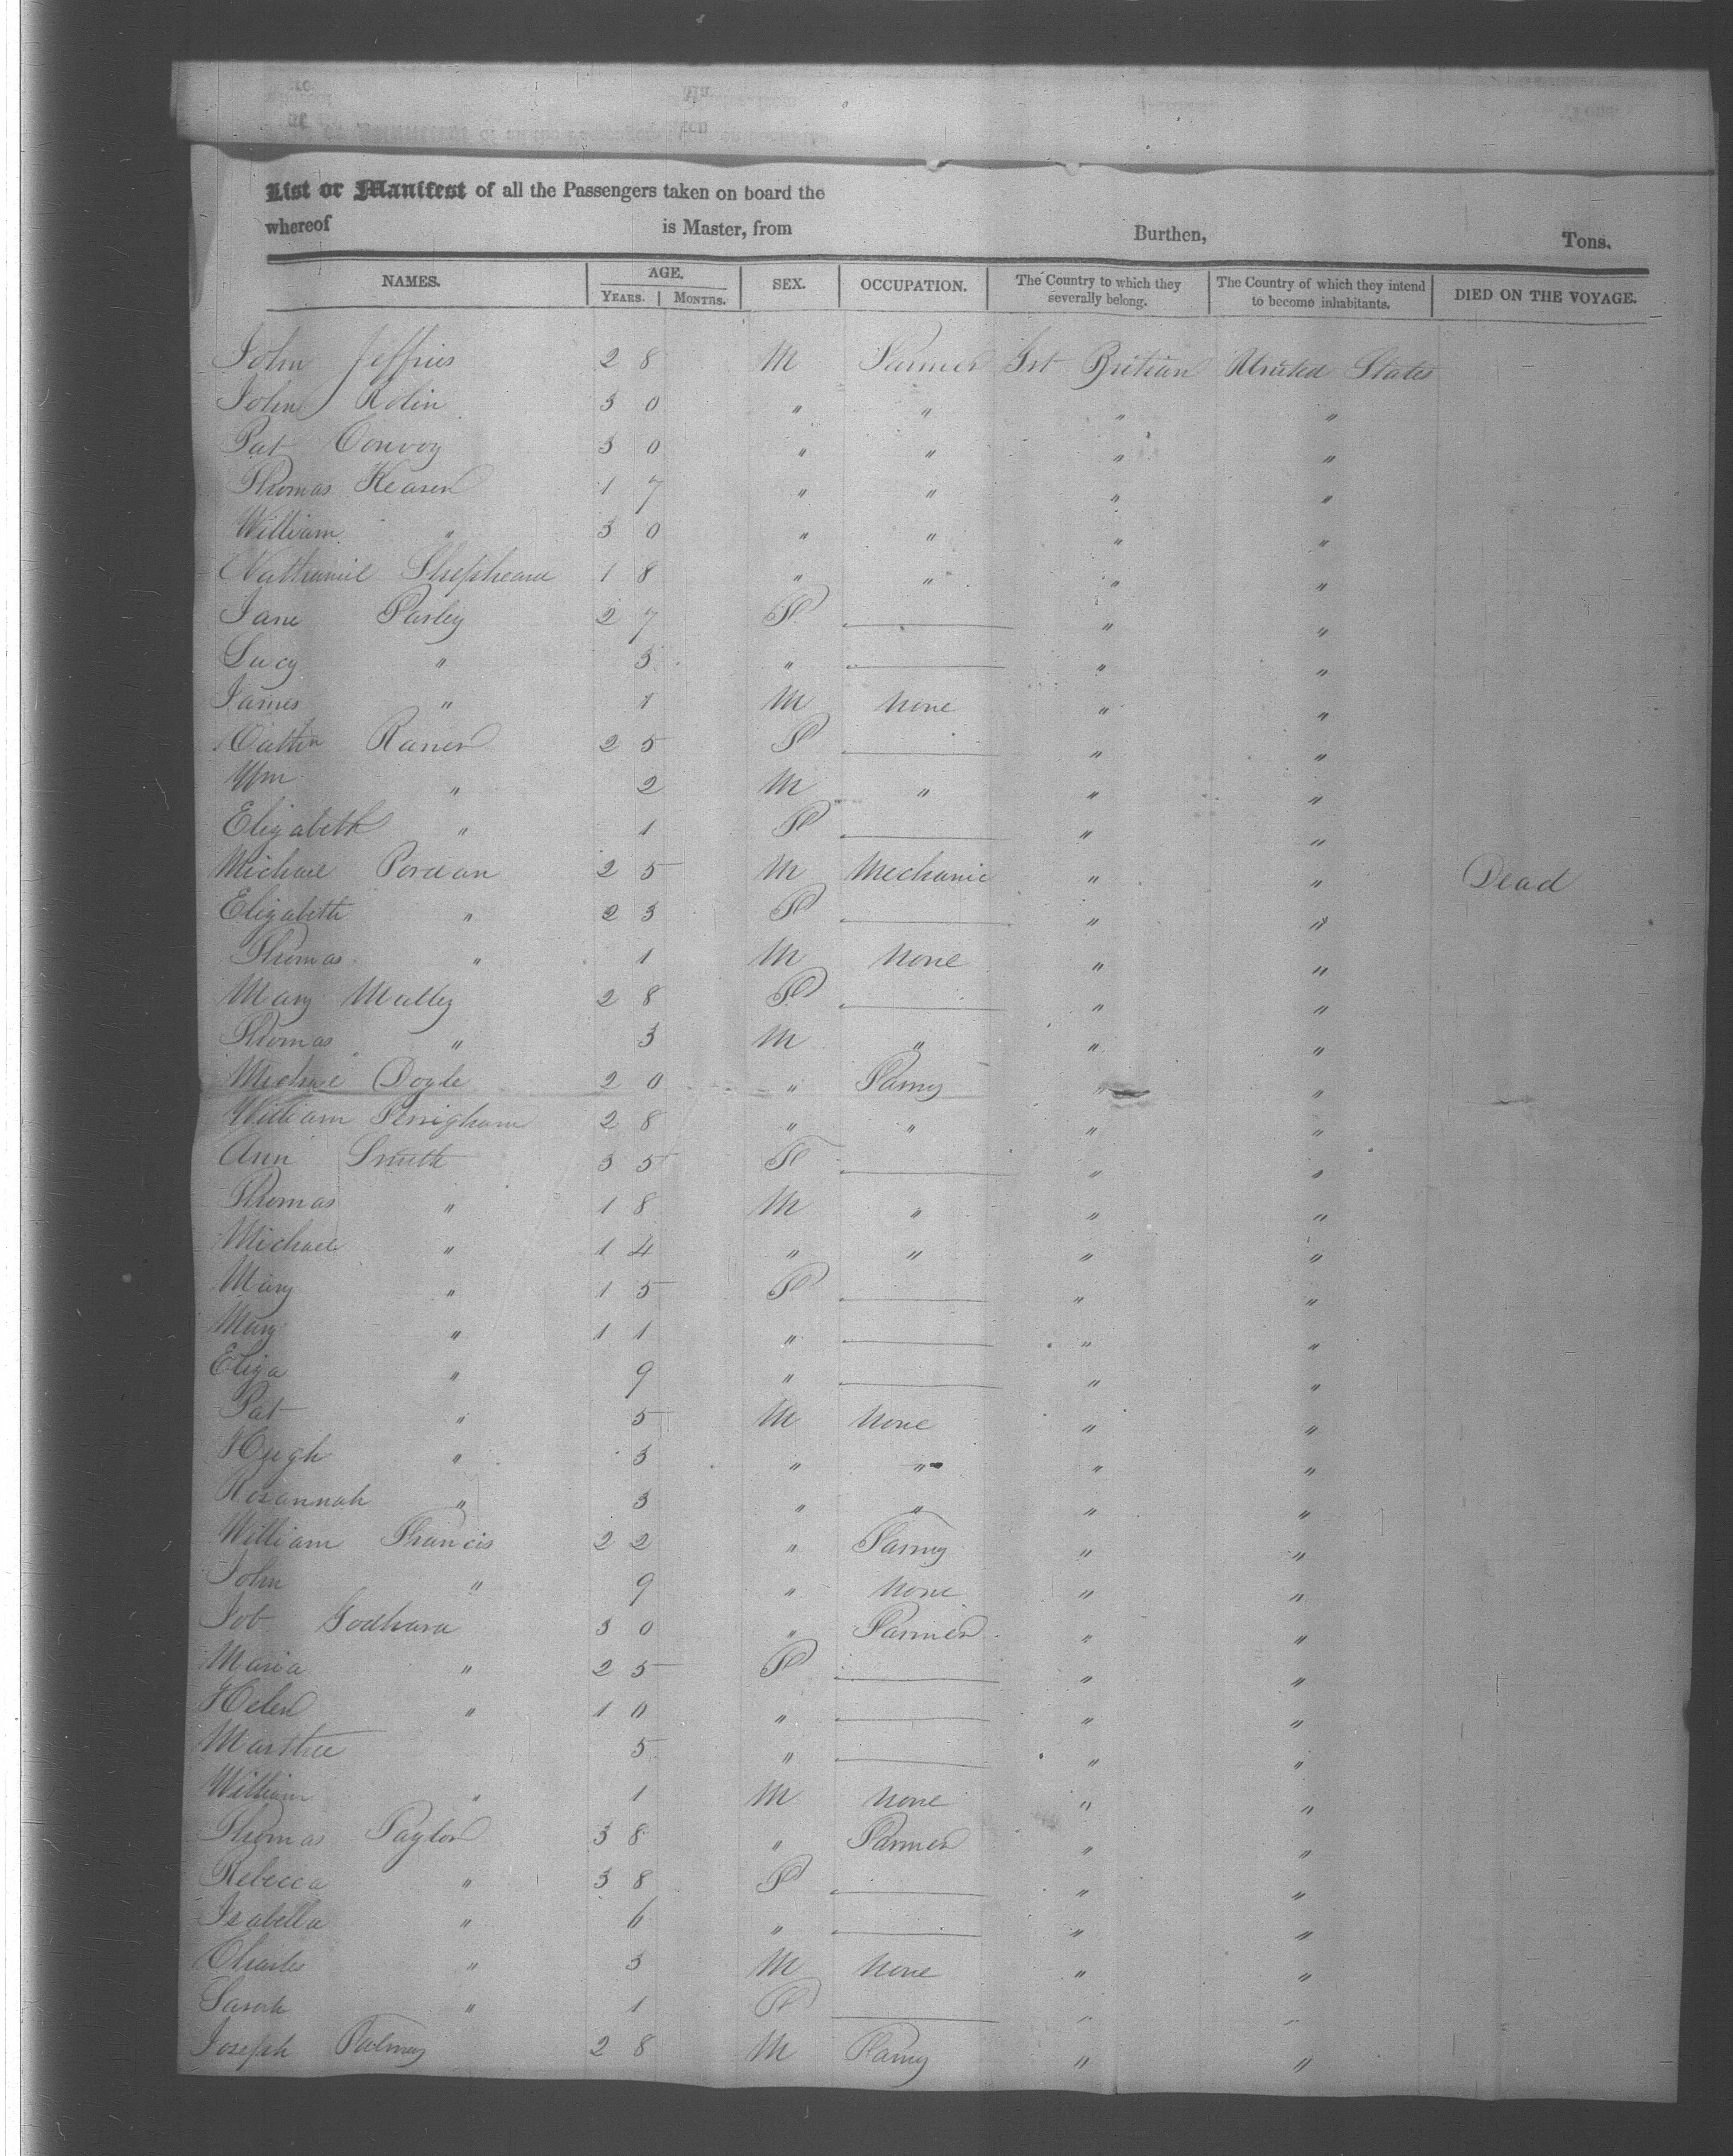 List or Manifest of all the Passengers taken on board the
whereof is Master, from Burthen, Tons.
NAMES. AGE. SEX. OCCUPATION. The Country to which they severally belong. The Country of which they intend to become inhabitants. DIED ON THE VOYAGE.
YEARS. MONTHS.
John Jeffries 28 M Farmer Grt Britian United States
John Rolin 30 " " " "
Pat Conroy 30 " " " "
Thomas 17 " " " "
William " 30 " " " "
Nathaniel 18 " " " "
Jane Parley 27 F " "
Lucy " 3 " " "
James " 1 M None " "
25 F " "
Wm " 2 M " " "
Elizabeth " 1 F " "
Michael 25 M Mechanic " " Dead
Elizabeth " 23 F " "
Thomas " 1 M None " "
Mary 28 F " "
Thomas " 3 M " " "
Michael Doyle 20 " " "
William 28 " " " "
Ann Smith 35 F " "
Thomas " 18 M " " "
Michael " 14 " " " "
Mary " 15 F " "
Mary " 11 " " "
Eliza " 9 " " "
Pat " 5 M None " "
Hugh " 3 " " " "
Rosannah " 3 " " " "
William Francis 22 " " "
John " 9 " None " "
Job 30 " Farmer " "
Maria " 25 F " "
Helen " 10 " " "
5 " " "
William " 1 M None " "
Thomas Taylor 38 " Farmer " "
Rebecca " 38 F " "
Isabella " 6 " " "
Charles " 3 M None " "
Sarah " 1 F " "
Joseph Palmer 28 M " "